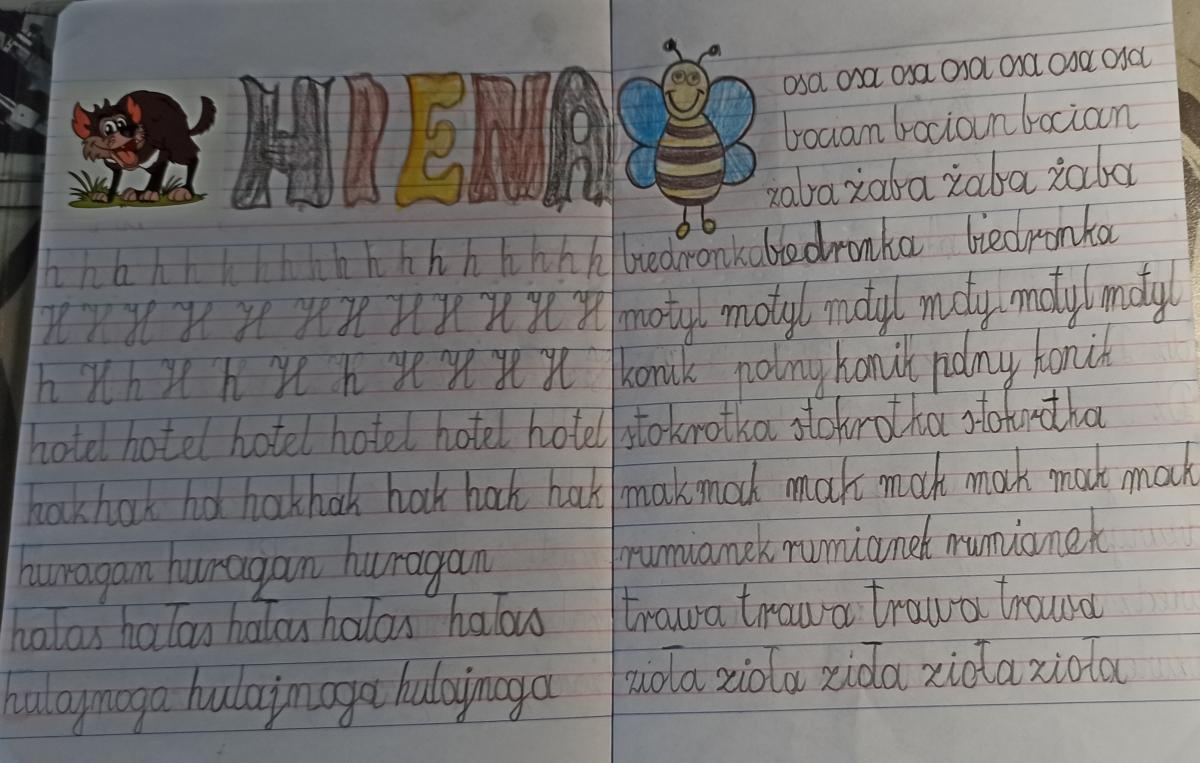 HIENA
h h h h h h h h h h h h h h h h h
H H H H H H H H H H H H
h H h H h H h H H H H
hotel hotel hotel hotel hotel hotel
hak hak hak hak hak hak hak hak
huragan huragan huragan
hałas hałas hałas hałas hałas
hulajnoga hulajnoga hulajnoga
osa osa osa osa osa osa osa
bocian bocian bocian
żaba żaba żaba żaba
biedronka biedronka biedronka
motyl motyl motyl motyl motyl motyl
konik polny konik polny konik
stokrotka stokrotka stokrotka
mak mak mak mak mak mak mak
rumianek rumianek rumianek
trawa trawa trawa trawa
zioła zioła zioła zioła zioła